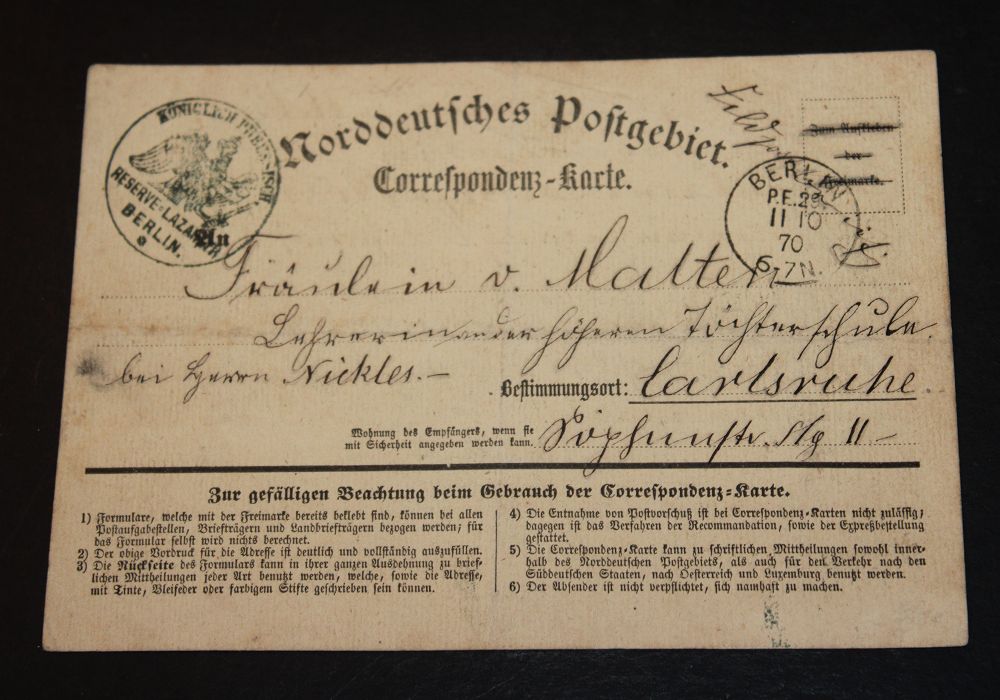 KÖNIGLICH PREUSSISCH
RESERVE-LAZARETH
BERLIN.
Norddeutsches Postgebiet.
Correspondenz-Karte.
Feldpost
Zum Aufkleben
der
Freimarke.
BERLIN
P.E. 29
11 10
70
6-7N.
An
Fräulein v. Malten
Lehrerin an der höheren Töchterschule
bei Herrn Nickles.-
Bestimmungsort: Carlsruhe.
Wohnung des Empfängers, wenn sie
mit Sicherheit angegeben werden kann.
11-
Zur gefälligen Beachtung beim Gebrauch der Correspondenz-Karte.
1) Formulare, welche mit der Freimarke bereits beklebt sind, können bei allen
Postaufgabestellen, Briefträgern und Landbriefträgern bezogen werden; für
das Formular selbst wird nichts berechnet.
2) Der obige Vordruck für die Adresse ist deutlich und vollständig auszufüllen.
3) Die Rückseite des Formulars kann in ihrer ganzen Ausdehnung zu brief-
lichen Mittheilungen jeder Art benutzt werden, welche, sowie die Adresse,
mit Tinte, Bleifeder oder farbigem Stifte geschrieben sein können.
4) Die Entnahme von Postvorschuß ist bei Correspondenz-Karten nicht zulässig,
dagegen ist das Verfahren der Recommandation, sowie der Expreßbestellung
gestattet.
5) Die Correspondenz-Karte kann zu schriftlichen Mittheilungen sowohl inner-
halb des Norddeutschen Postgebiets, als auch für den Verkehr nach den
Süddeutschen Staaten, nach Oesterreich und Luxemburg benutzt werden.
6) Der Absender ist nicht verpflichtet, sich namhaft zu machen.